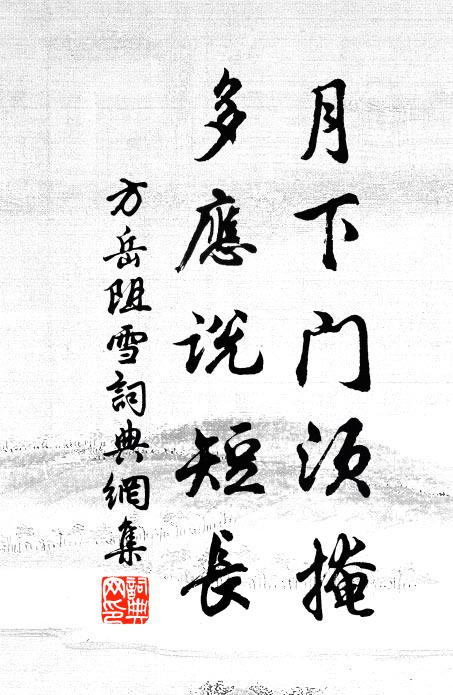 月下门须掩
多應说短長
方岳阻雪詞典網集
詞典
网印